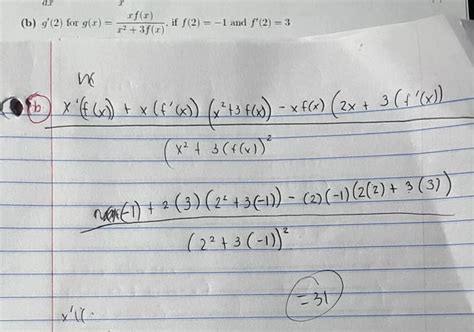 (b) g'(2) for g(x) = xf(x) / x² + 3f(x), if f(2) = −1 and f'(2) = 3
b x'(f(x)) + x(f'(x)) (x²+3f(x)) − xf(x) (2x + 3(f'(x))
(x² + 3(f(x))²
(-1) + 2(3)(2²+3(-1)) − (2)(-1)(2(2)+3(3))
(2²+3(-1))²
=31
x'((